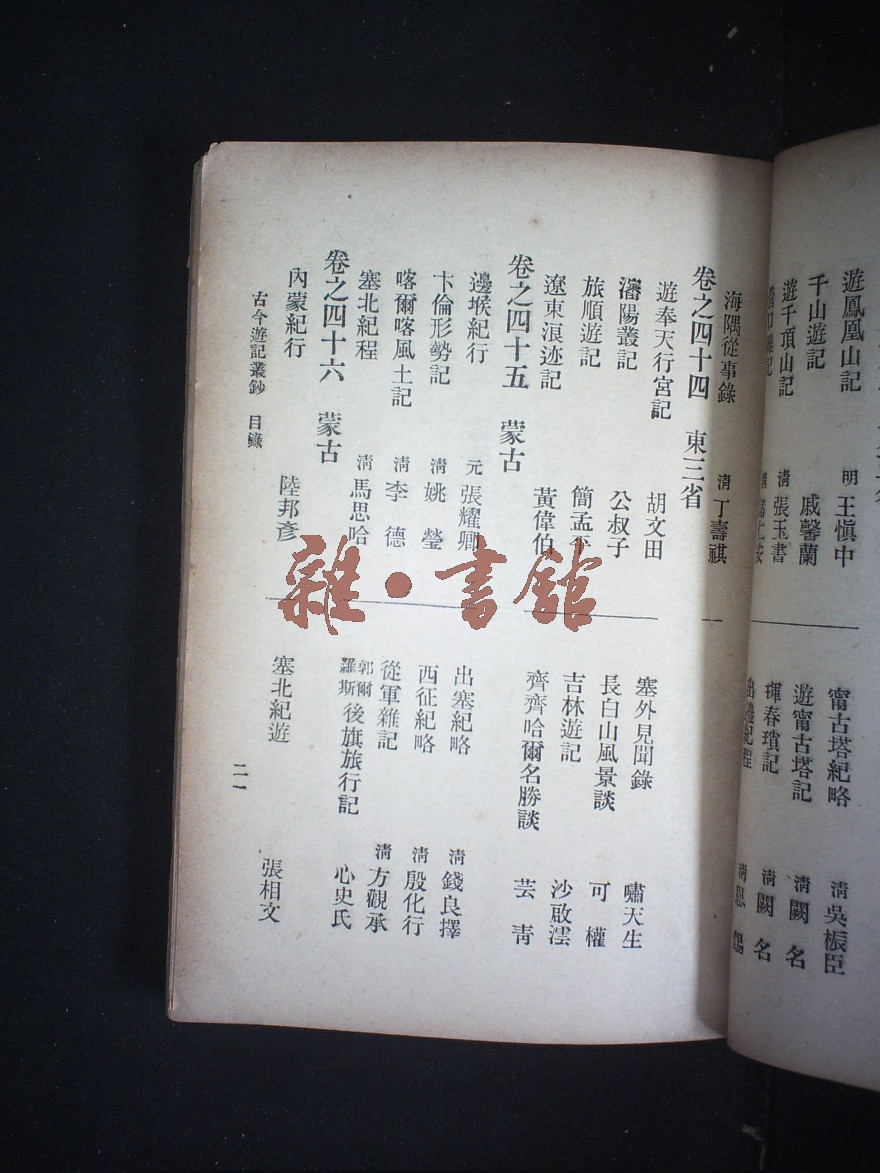 遊鳳凰山記 明 王愼中
千山遊記 戚馨蘭
遊千頂山記 清 張玉書
甯古塔紀略 清 吳桭臣
遊甯古塔記 清 闕名
琿春瑣記 清 闕名
出邊紀程 清 恩錫
海隅從事錄 清 丁壽祺
卷之四十四 東三省
遊奉天行宮記 胡文田
瀋陽叢記 公叔子
旅順遊記 簡孟平
遼東浪迹記 黃偉伯
塞外見聞錄 嘯天生
長白山風景談 可權
吉林遊記 沙啟澐
齊齊哈爾名勝談 芸靑
卷之四十五 蒙古
邊堠紀行 元 張耀卿
卞倫形勢記 清 姚瑩
喀爾喀風土記 清 李德
塞北紀程 清 馬思哈
出塞紀略 清 錢良擇
西征紀略 清 殷化行
從軍雜記 清 方觀承
郭爾羅斯後旗旅行記 心史氏
卷之四十六 蒙古
內蒙紀行 陸邦彥
塞北紀遊 張相文
古今遊記叢鈔 目錄 二一
雜·書館